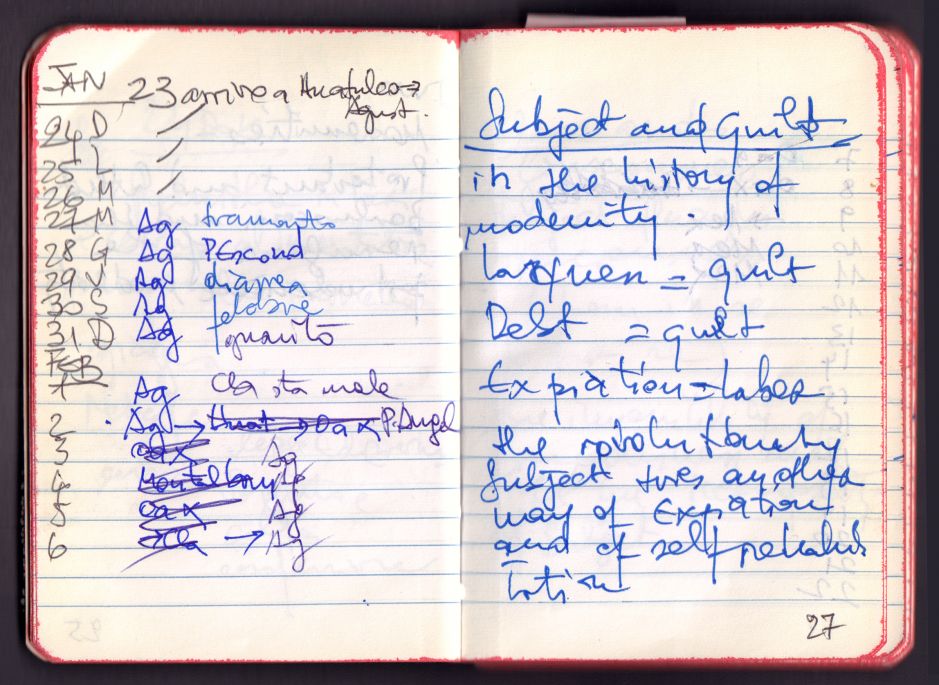 JAN 23 arrivo a Huatulco →
Agust.
24 D
25 L
26 M
27 M Ag tramonto
28 G Ag P. Escond
29 V Ag diarrea
30 S Ag febbre
31 D Ag guarito
FEB
1 Ag Cla sta male
2 Ag → Huat → Oax P. Angel
3 Oax Ag
4 Ag
5 Oax Ag
6 → Ag
Subject and Guilt
in the history of
modernity.
= guilt
Debt = guilt
Expiation = Labor
the revolutionary
Subject lives another
way of Expiation
and of self
27